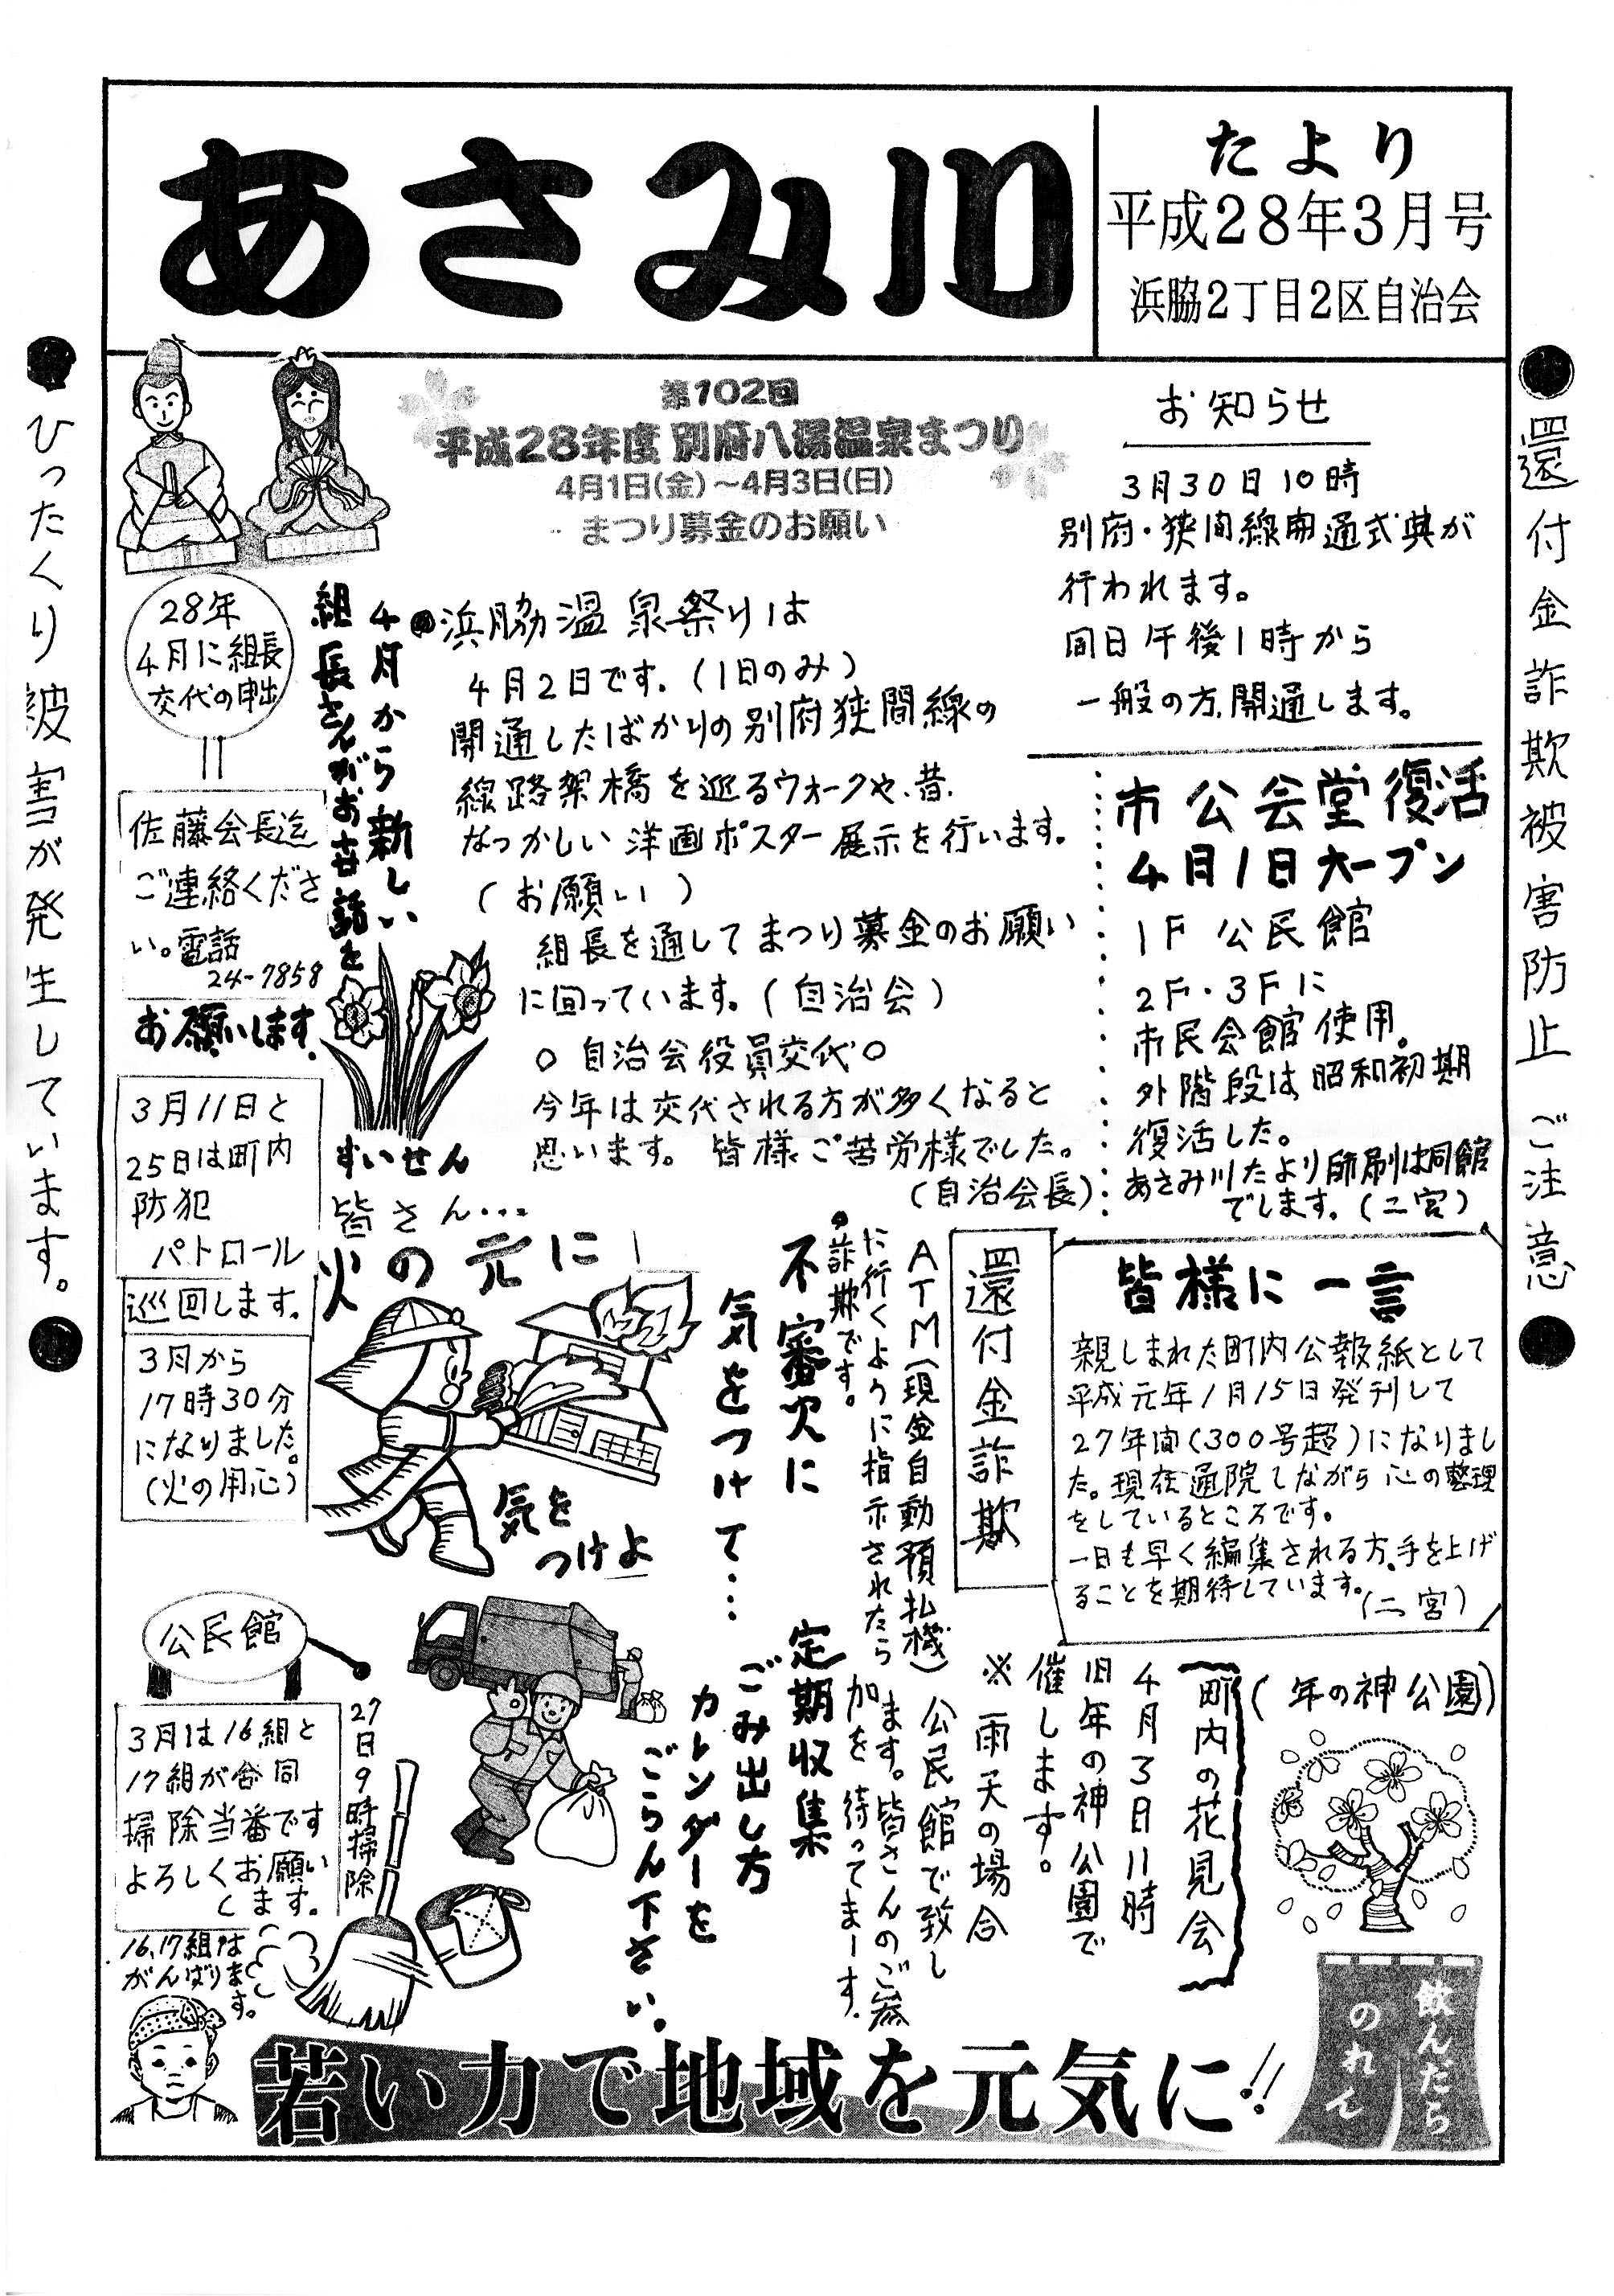 あさみ川
たより
平成28年3月号
浜脇2丁目2区自治会
●ひったくり被害が発生しています。●
●還付金詐欺被害防止 ご注意●
第102回
平成28年度 別府八湯温泉まつり
4月1日(金)～4月3日(日)
まつり募金のお願い
お知らせ
3月30日10時
別府・狭間線開通式典が
行われます。
同日午後1時から
一般の方、開通します。
28年
4月に組長
交代の申出
佐藤会長迄
ご連絡くださ
い。電話
24-7858
お願いします.
4月から新しい
組長さんがお世話を
すいせん
浜脇温泉祭りは
4月2日です.(1日のみ)
開通したばかりの別府狭間線の
線路架橋を巡るウォークや、昔、
なつかしい洋画ポスター展示を行います。
(お願い)
組長を通してまつり募金のお願い
に回っています。(自治会)
○自治会役員交代○
今年は交代される方が多くなると
思います。皆様ご苦労様でした。
(自治会長)
市公会堂復活
4月1日オープン
1F 公民館
2F・3Fに
市民会館使用。
外階段は昭和初期
復活した。
あさみ川たより印刷は同館
でします。(二宮)
3月11日と
25日は町内
防犯
パトロール
巡回します。
3月から
17時30分
になりました。
(火の用心)
皆さん…
火の元に
気を
つけよ
不審火に
気をつけて…
還付金詐欺
ATM(現金自動預払機)
に行くように指示されたら
詐欺です。
皆様に一言
親しまれた町内公報紙として
平成元年1月15日発刊して
27年間(300号超)になりまし
た。現在通院しながら心の整理
をしているところです。
一日も早く編集される方、手を上げ
ることを期待しています。
(二宮)
公民館
27日9時掃除
3月は16組と
17組が合同
掃除当番です
よろしくお願い
します。
16、17組は
がんばりま
す。
定期収集
ごみ出し方
カレンダーを
ごらん下さい.
町内の花見会
(年の神公園)
4月3日11時
旧年の神公園で
催します。
※雨天の場合
公民館で致し
ます。皆さんのご参
加を待ってまーす.
若い力で地域を元気に!!
飲んだら
のれん